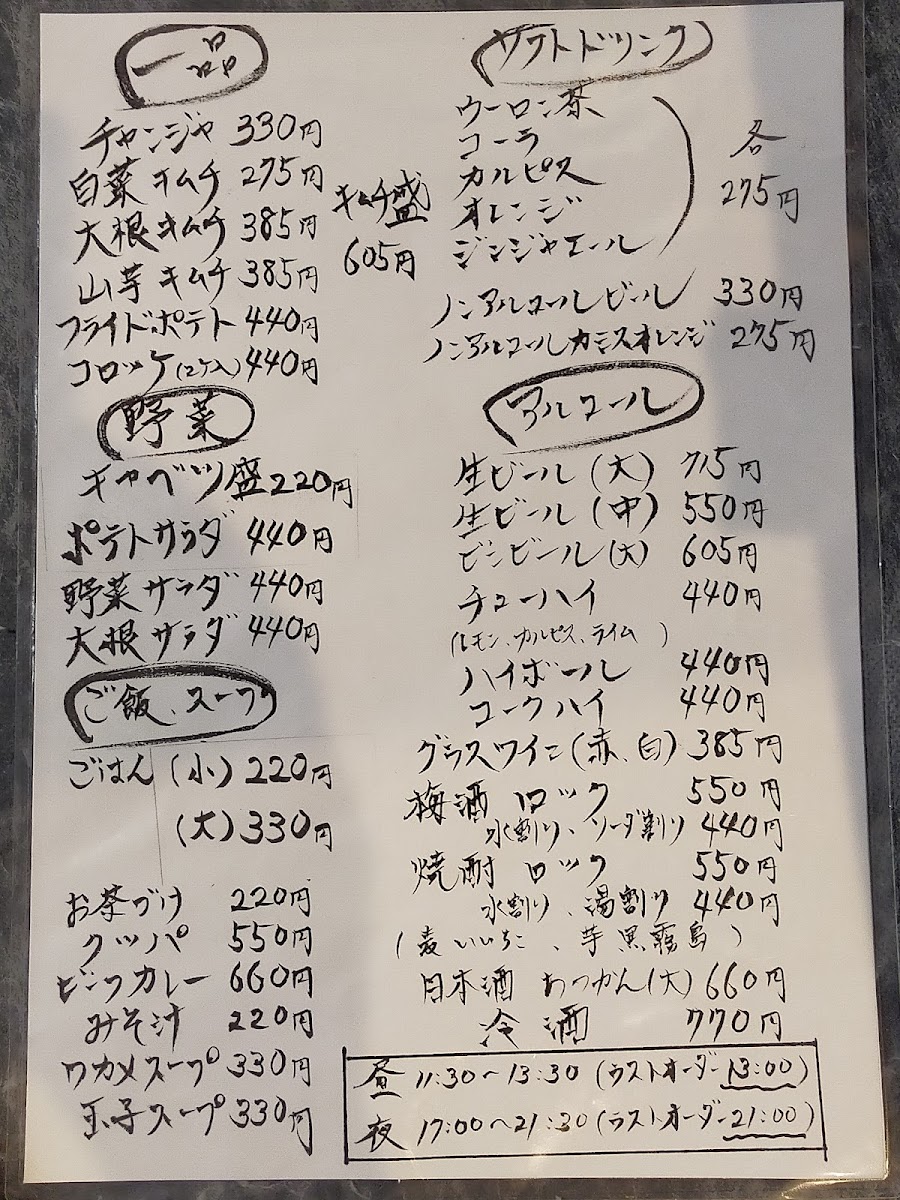 一品
チャンジャ 330円
白菜キムチ 275円
大根キムチ 385円
山芋キムチ 385円
キムチ盛
605円
フライドポテト 440円
コロッケ(2ケ入) 440円
野菜
キャベツ盛 220円
ポテトサラダ 440円
野菜サラダ 440円
大根サラダ 440円
ご飯、スープ
ごはん (小) 220円
(大) 330円
お茶づけ 220円
クッパ 550円
ビーフカレー 660円
みそ汁 220円
ワカメスープ 330円
玉子スープ 330円
ソフトドリンク
ウーロン茶
コーラ
カルピス
オレンジ
ジンジャエール
各
275円
ノンアルコールビール 330円
ノンアルコールカシスオレンジ 275円
アルコール
生ビール (大) 715円
生ビール (中) 550円
ビンビール (大) 605円
チューハイ 440円
(レモン、カルピス、ライム )
ハイボール 440円
コークハイ 440円
グラスワイン (赤、白) 385円
梅酒 ロック 550円
水割り、ソーダ割り 440円
焼酎 ロック 550円
水割り、湯割り 440円
(麦いいちこ、芋黒霧島)
日本酒 あつかん(大) 660円
冷酒 770円
昼 11:30〜13:30 (ラストオーダー13:00)
夜 17:00〜21:30 (ラストオーダー21:00)